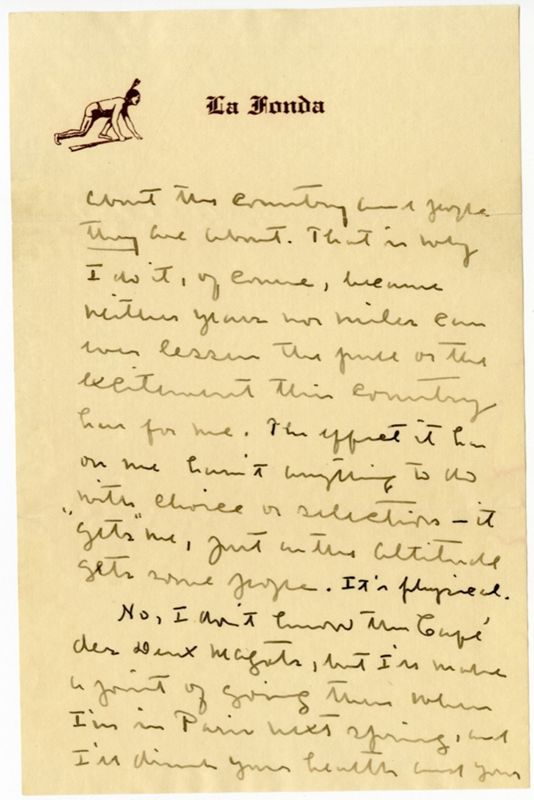 La Fonda
about the country and people
they are about. That is why
I do it, of course, because
neither years nor miles can
ever lessen the pull or the
excitement this country
has for me. The effect it has
on me hasn't anything to do
with choice or selection – it
"gets" me, just as the altitude
gets some people. It's physical.
No, I don't know the Café
des Deux Magots, but I'll make
a point of going there when
I'm in Paris next spring, and
I'll drink your health and your